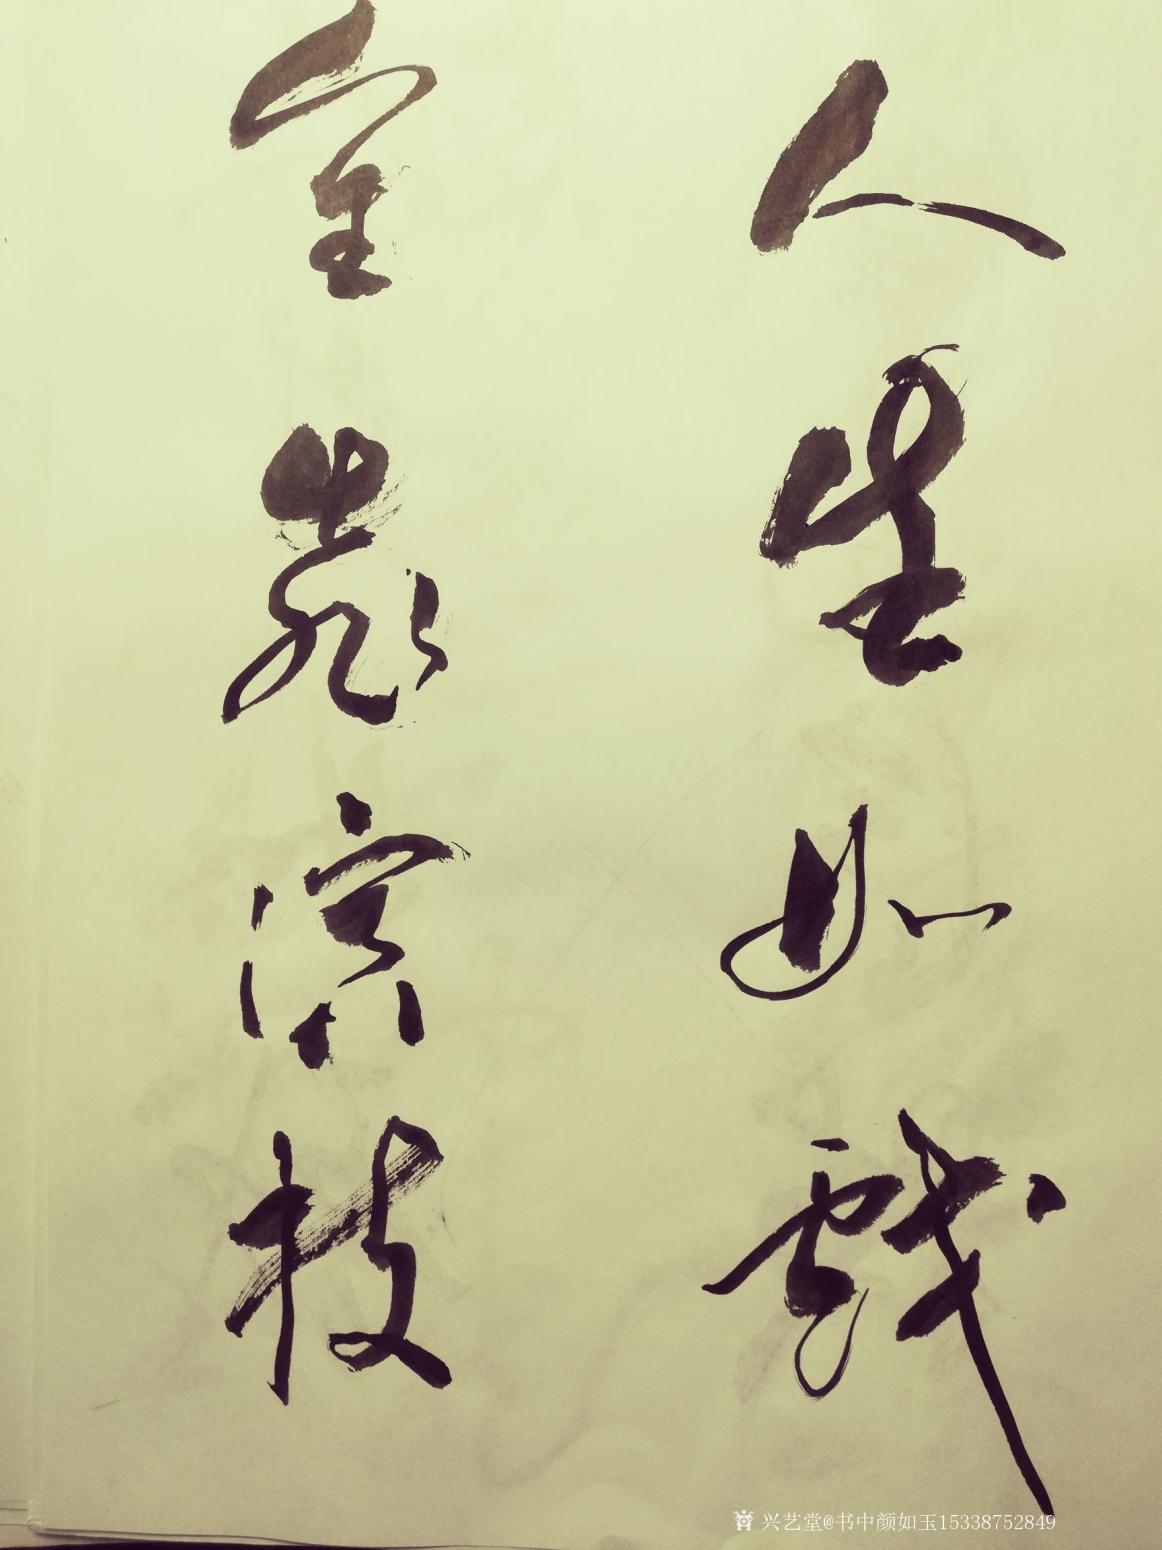 人生如戲
全靠演技
兴艺堂@书中颜如玉15338752849